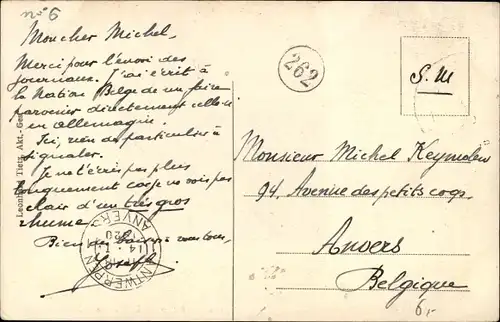 n° 6
Mon cher Michel,
Merci pour l'envoi des
journaux. J'ai écrit à
la Nation Belge de me faire
parvenir directement celle-ci
en Allemagne.
Ici, rien de particulier à
signaler.
Je ne t'écris pas plus
longuement car je ne vois pas
clair d'un très gros
rhume.
Bien des baisers à vous tous,
Joseph
Leonhard Tietz, Akt.-Ges.
262
S. M
Monsieur Michel
94, Avenue des petits coqs
Anvers
Belgique
6,-
ANTWERPEN
ANVERS
14
1920